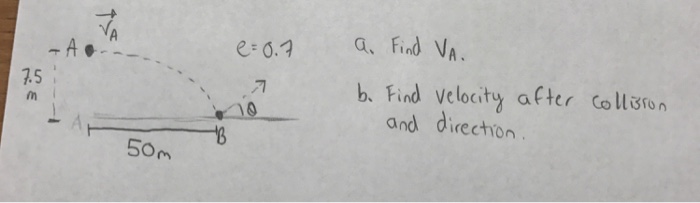 V_A
A
e=0.7
7.5
m
θ
A
B
50m
a. Find V_A.
b. Find velocity after collision
and direction.